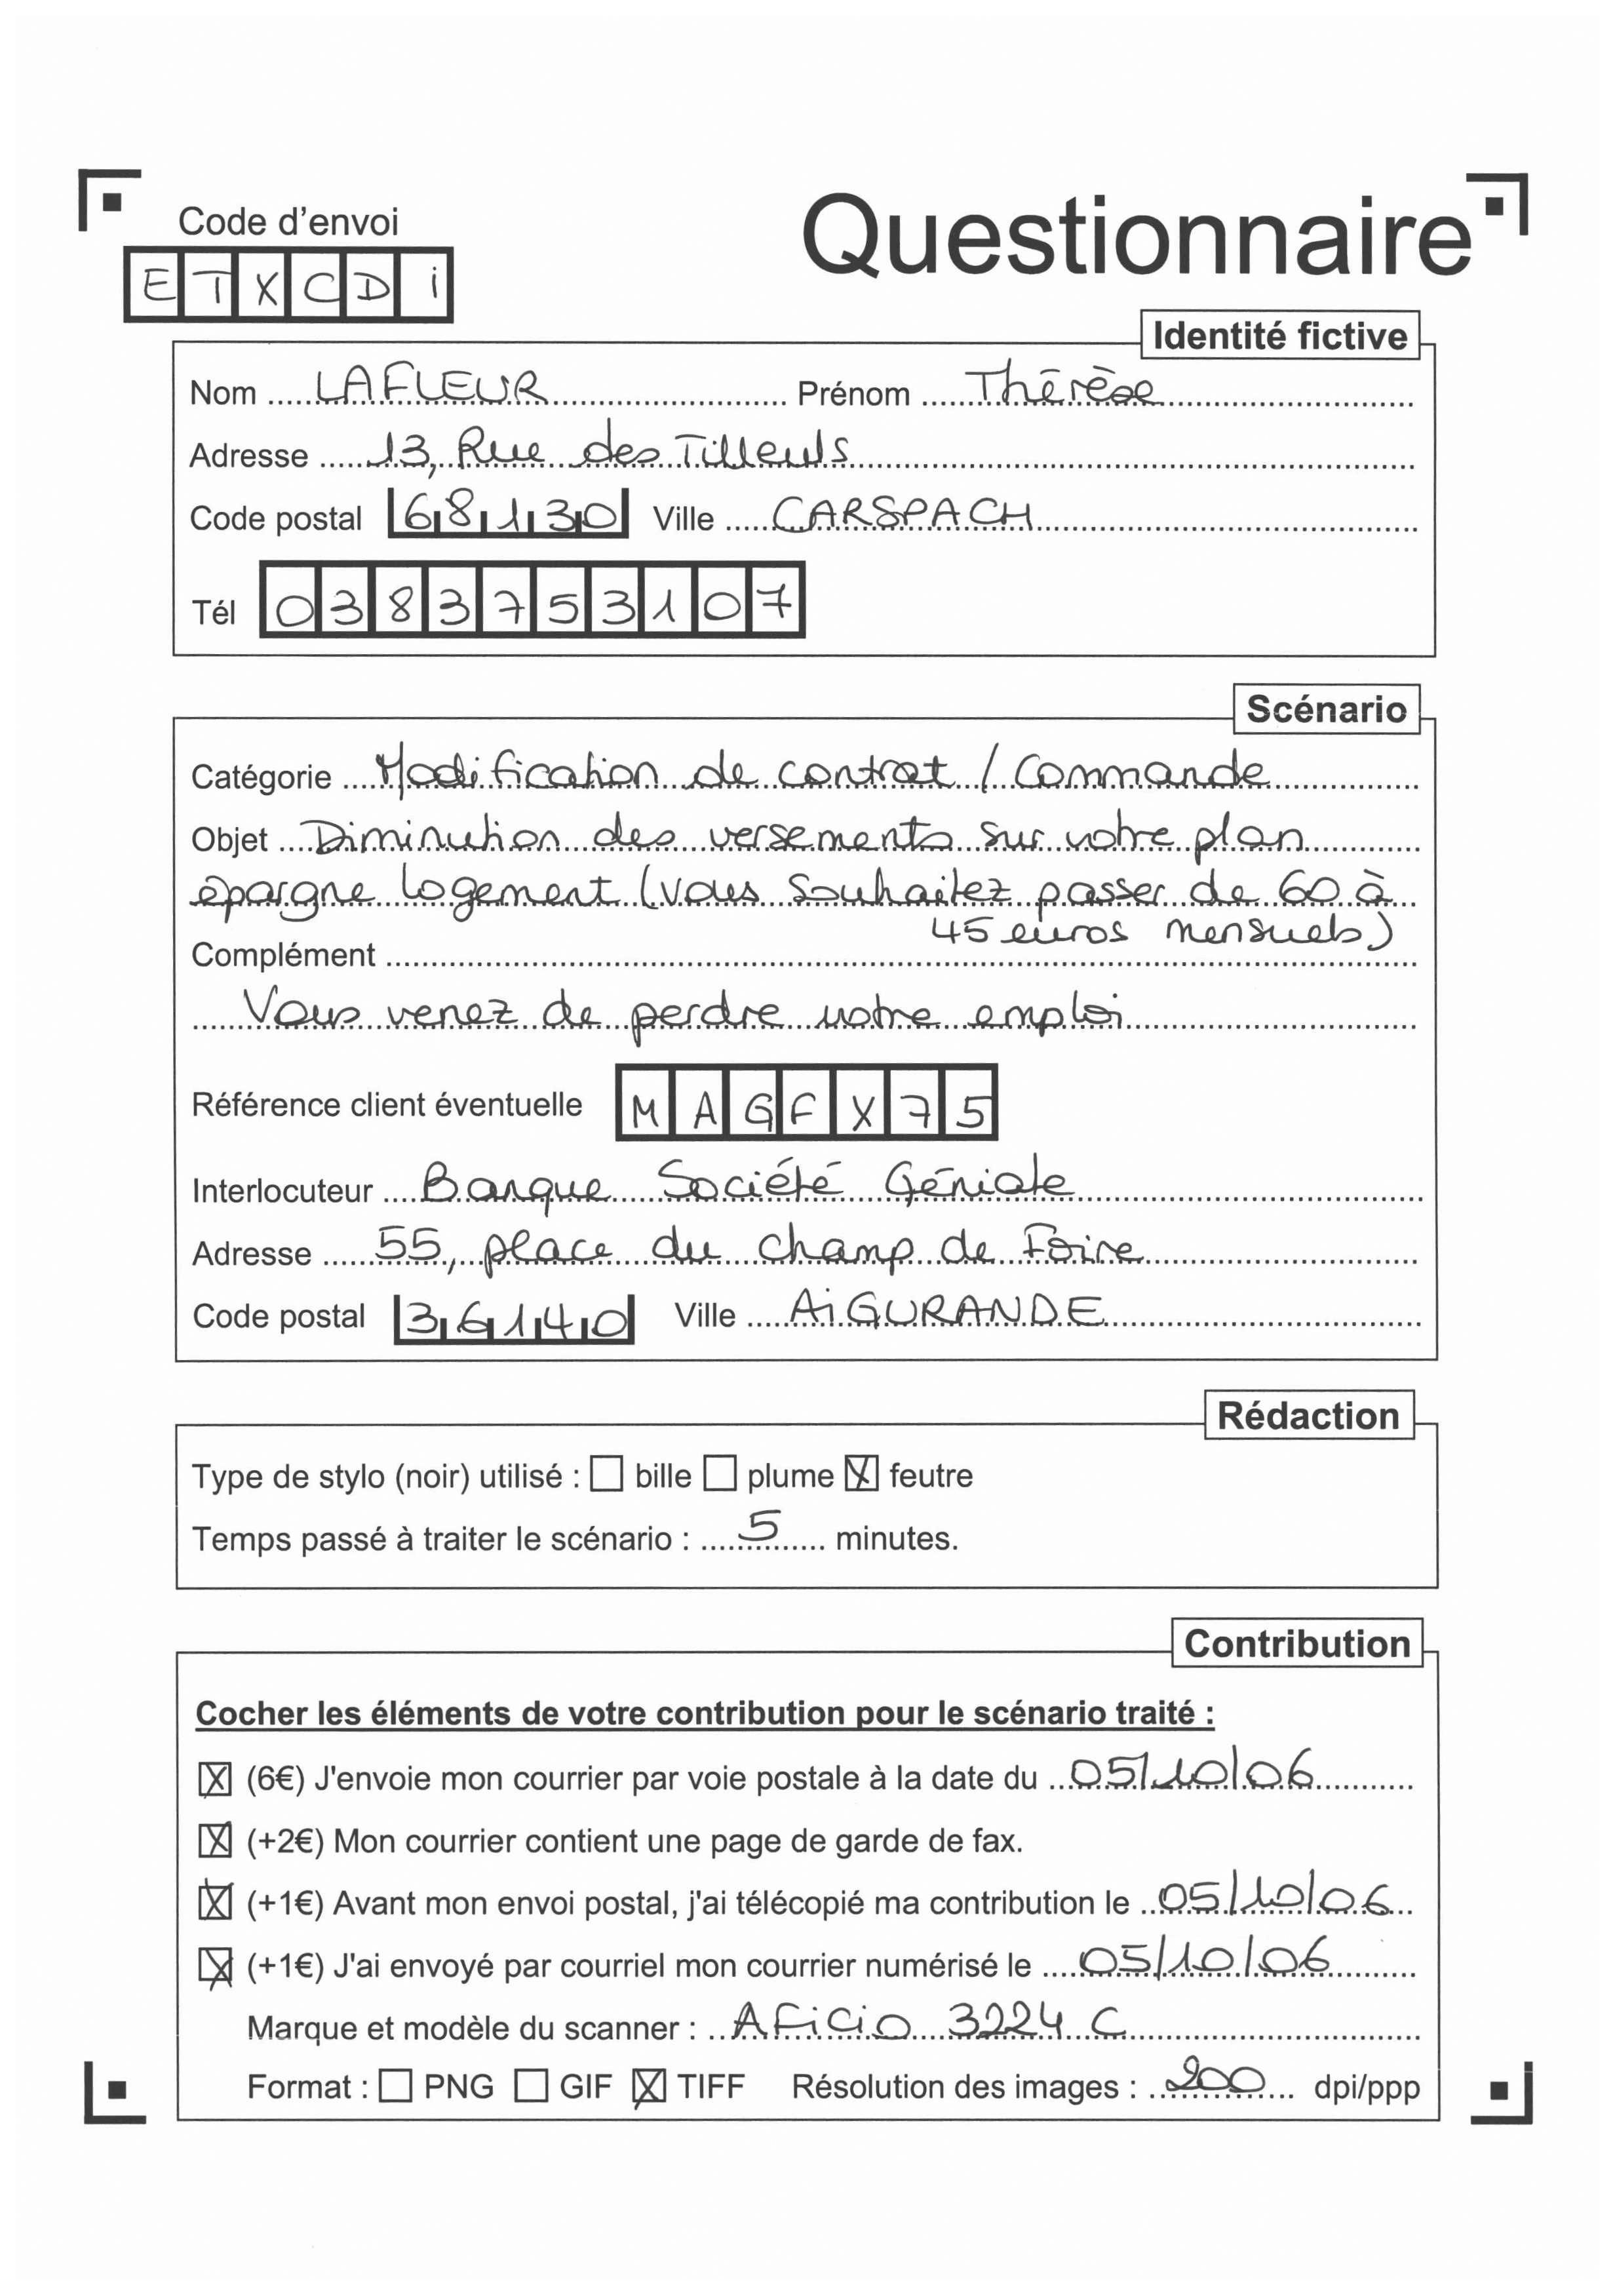 Code d'envoi
Questionnaire
ETXCDi
Identité fictive
Nom LAFLEUR Prénom Thérèse
Adresse 13, Rue des Tilleuls
Code postal 68130 Ville CARSPACH
Tél 0383753107
Scénario
Catégorie Modification de contrat / Commande
Objet Diminution des versements sur votre plan
épargne logement (vous souhaitez passer de 60 à
45 euros mensuels)
Complément
Vous venez de perdre votre emploi
Référence client éventuelle MAGFX75
Interlocuteur Banque Société Géniale
Adresse 55, place du champ de Foire
Code postal 36140 Ville AiGURANDE
Rédaction
Type de stylo (noir) utilisé : ☐ bille ☐ plume ☒ feutre
Temps passé à traiter le scénario : 5 minutes.
Contribution
Cocher les éléments de votre contribution pour le scénario traité :
☒ (6€) J'envoie mon courrier par voie postale à la date du 05/10/06
☒ (+2€) Mon courrier contient une page de garde de fax.
☒ (+1€) Avant mon envoi postal, j'ai télécopié ma contribution le 05/10/06
☒ (+1€) J'ai envoyé par courriel mon courrier numérisé le 05/10/06
Marque et modèle du scanner : AFiCio 3224 C
Format : ☐ PNG ☐ GIF ☒ TIFF Résolution des images : 200 dpi/ppp